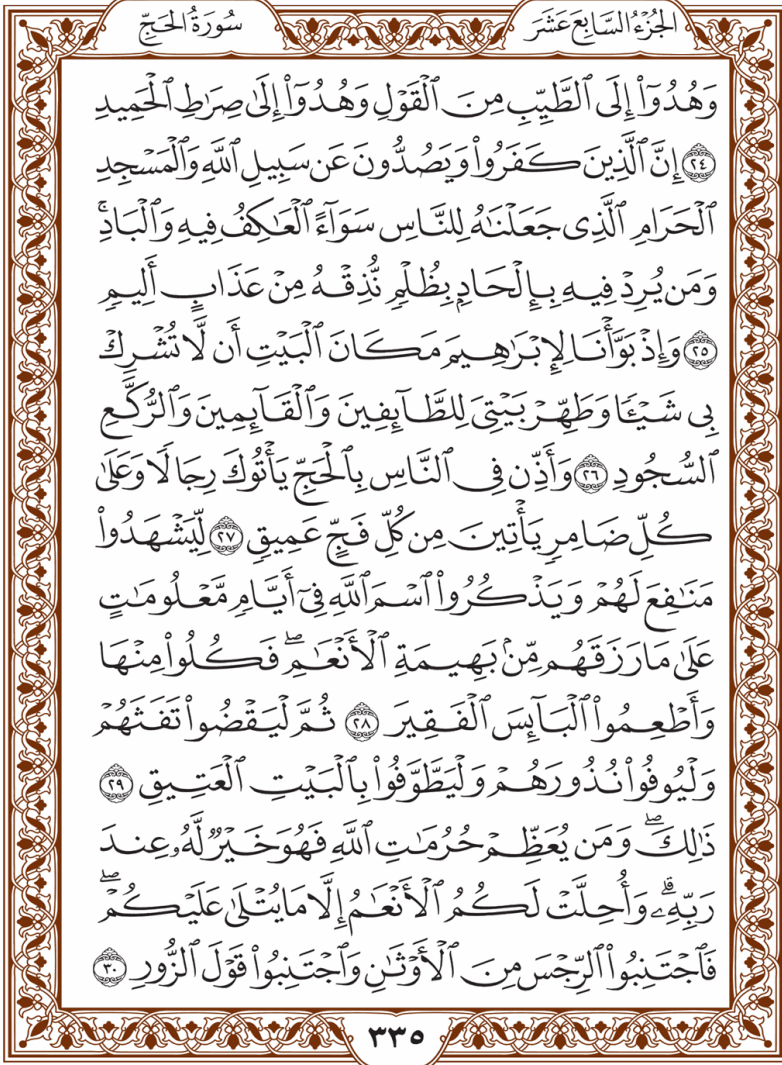 سُورَةُ الحَجِّ
الجُزْءُ السَّابِعَ عَشَرَ
وَهُدُوٓاْ إِلَى ٱلطَّيِّبِ مِنَ ٱلْقَوْلِ وَهُدُوٓاْ إِلَىٰ صِرَٰطِ ٱلْحَمِيدِ
٢٤ إِنَّ ٱلَّذِينَ كَفَرُواْ وَيَصُدُّونَ عَن سَبِيلِ ٱللَّهِ وَٱلْمَسْجِدِ
ٱلْحَرَامِ ٱلَّذِى جَعَلْنَٰهُ لِلنَّاسِ سَوَآءً ٱلْعَٰكِفُ فِيهِ وَٱلْبَادِۚ
وَمَن يُرِدْ فِيهِ بِإِلْحَادِۭ بِظُلْمٍ نُّذِقْهُ مِنْ عَذَابٍ أَلِيمٍ
٢٥ وَإِذْ بَوَّأْنَا لِإِبْرَٰهِيمَ مَكَانَ ٱلْبَيْتِ أَن لَّا تُشْرِكْ
بِى شَيْـًٔا وَطَهِّرْ بَيْتِىَ لِلطَّآئِفِينَ وَٱلْقَآئِمِينَ وَٱلرُّكَّعِ
ٱلسُّجُودِ ٢٦ وَأَذِّن فِى ٱلنَّاسِ بِٱلْحَجِّ يَأْتُوكَ رِجَالًا وَعَلَىٰ
كُلِّ ضَامِرٍ يَأْتِينَ مِن كُلِّ فَجٍّ عَمِيقٍ ٢٧ لِّيَشْهَدُواْ
مَنَٰفِعَ لَهُمْ وَيَذْكُرُواْ ٱسْمَ ٱللَّهِ فِىٓ أَيَّامٍ مَّعْلُومَٰتٍ
عَلَىٰ مَا رَزَقَهُم مِّنۢ بَهِيمَةِ ٱلْأَنْعَٰمِۖ فَكُلُواْ مِنْهَا
وَأَطْعِمُواْ ٱلْبَآئِسَ ٱلْفَقِيرَ ٢٨ ثُمَّ لْيَقْضُواْ تَفَثَهُمْ
وَلْيُوفُواْ نُذُورَهُمْ وَلْيَطَّوَّفُواْ بِٱلْبَيْتِ ٱلْعَتِيقِ ٢٩
ذَٰلِكَۖ وَمَن يُعَظِّمْ حُرُمَٰتِ ٱللَّهِ فَهُوَ خَيْرٌ لَّهُۥ عِندَ
رَبِّهِۦۗ وَأُحِلَّتْ لَكُمُ ٱلْأَنْعَٰمُ إِلَّا مَا يُتْلَىٰ عَلَيْكُمْۖ
فَٱجْتَنِبُواْ ٱلرِّجْسَ مِنَ ٱلْأَوْثَٰنِ وَٱجْتَنِبُواْ قَوْلَ ٱلزُّورِ ٣٠
٣٣٥